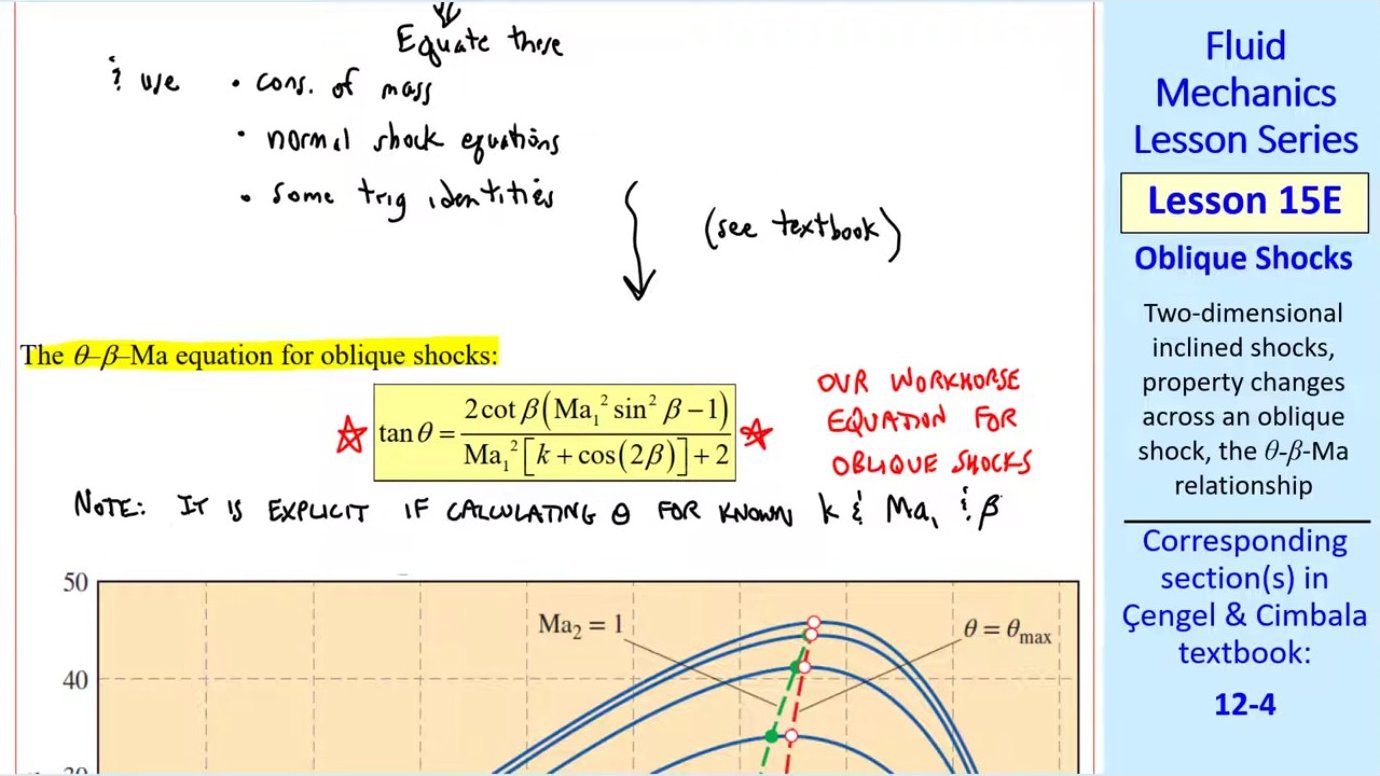 Equate these
& use • cons. of mass
• normal shock equations
• some trig identities
(see textbook)
The θ–β–Ma equation for oblique shocks:
tan θ = 2 cot β(Ma₁² sin² β − 1) / Ma₁²[k + cos(2β)] + 2
OUR WORKHORSE
EQUATION FOR
OBLIQUE SHOCKS
NOTE: IT IS EXPLICIT IF CALCULATING θ FOR KNOWN k & Ma₁ & β
50
Ma₂ = 1
θ = θmax
40
30
Fluid
Mechanics
Lesson Series
Lesson 15E
Oblique Shocks
Two-dimensional
inclined shocks,
property changes
across an oblique
shock, the θ-β-Ma
relationship
Corresponding
section(s) in
Çengel & Cimbala
textbook:
12-4